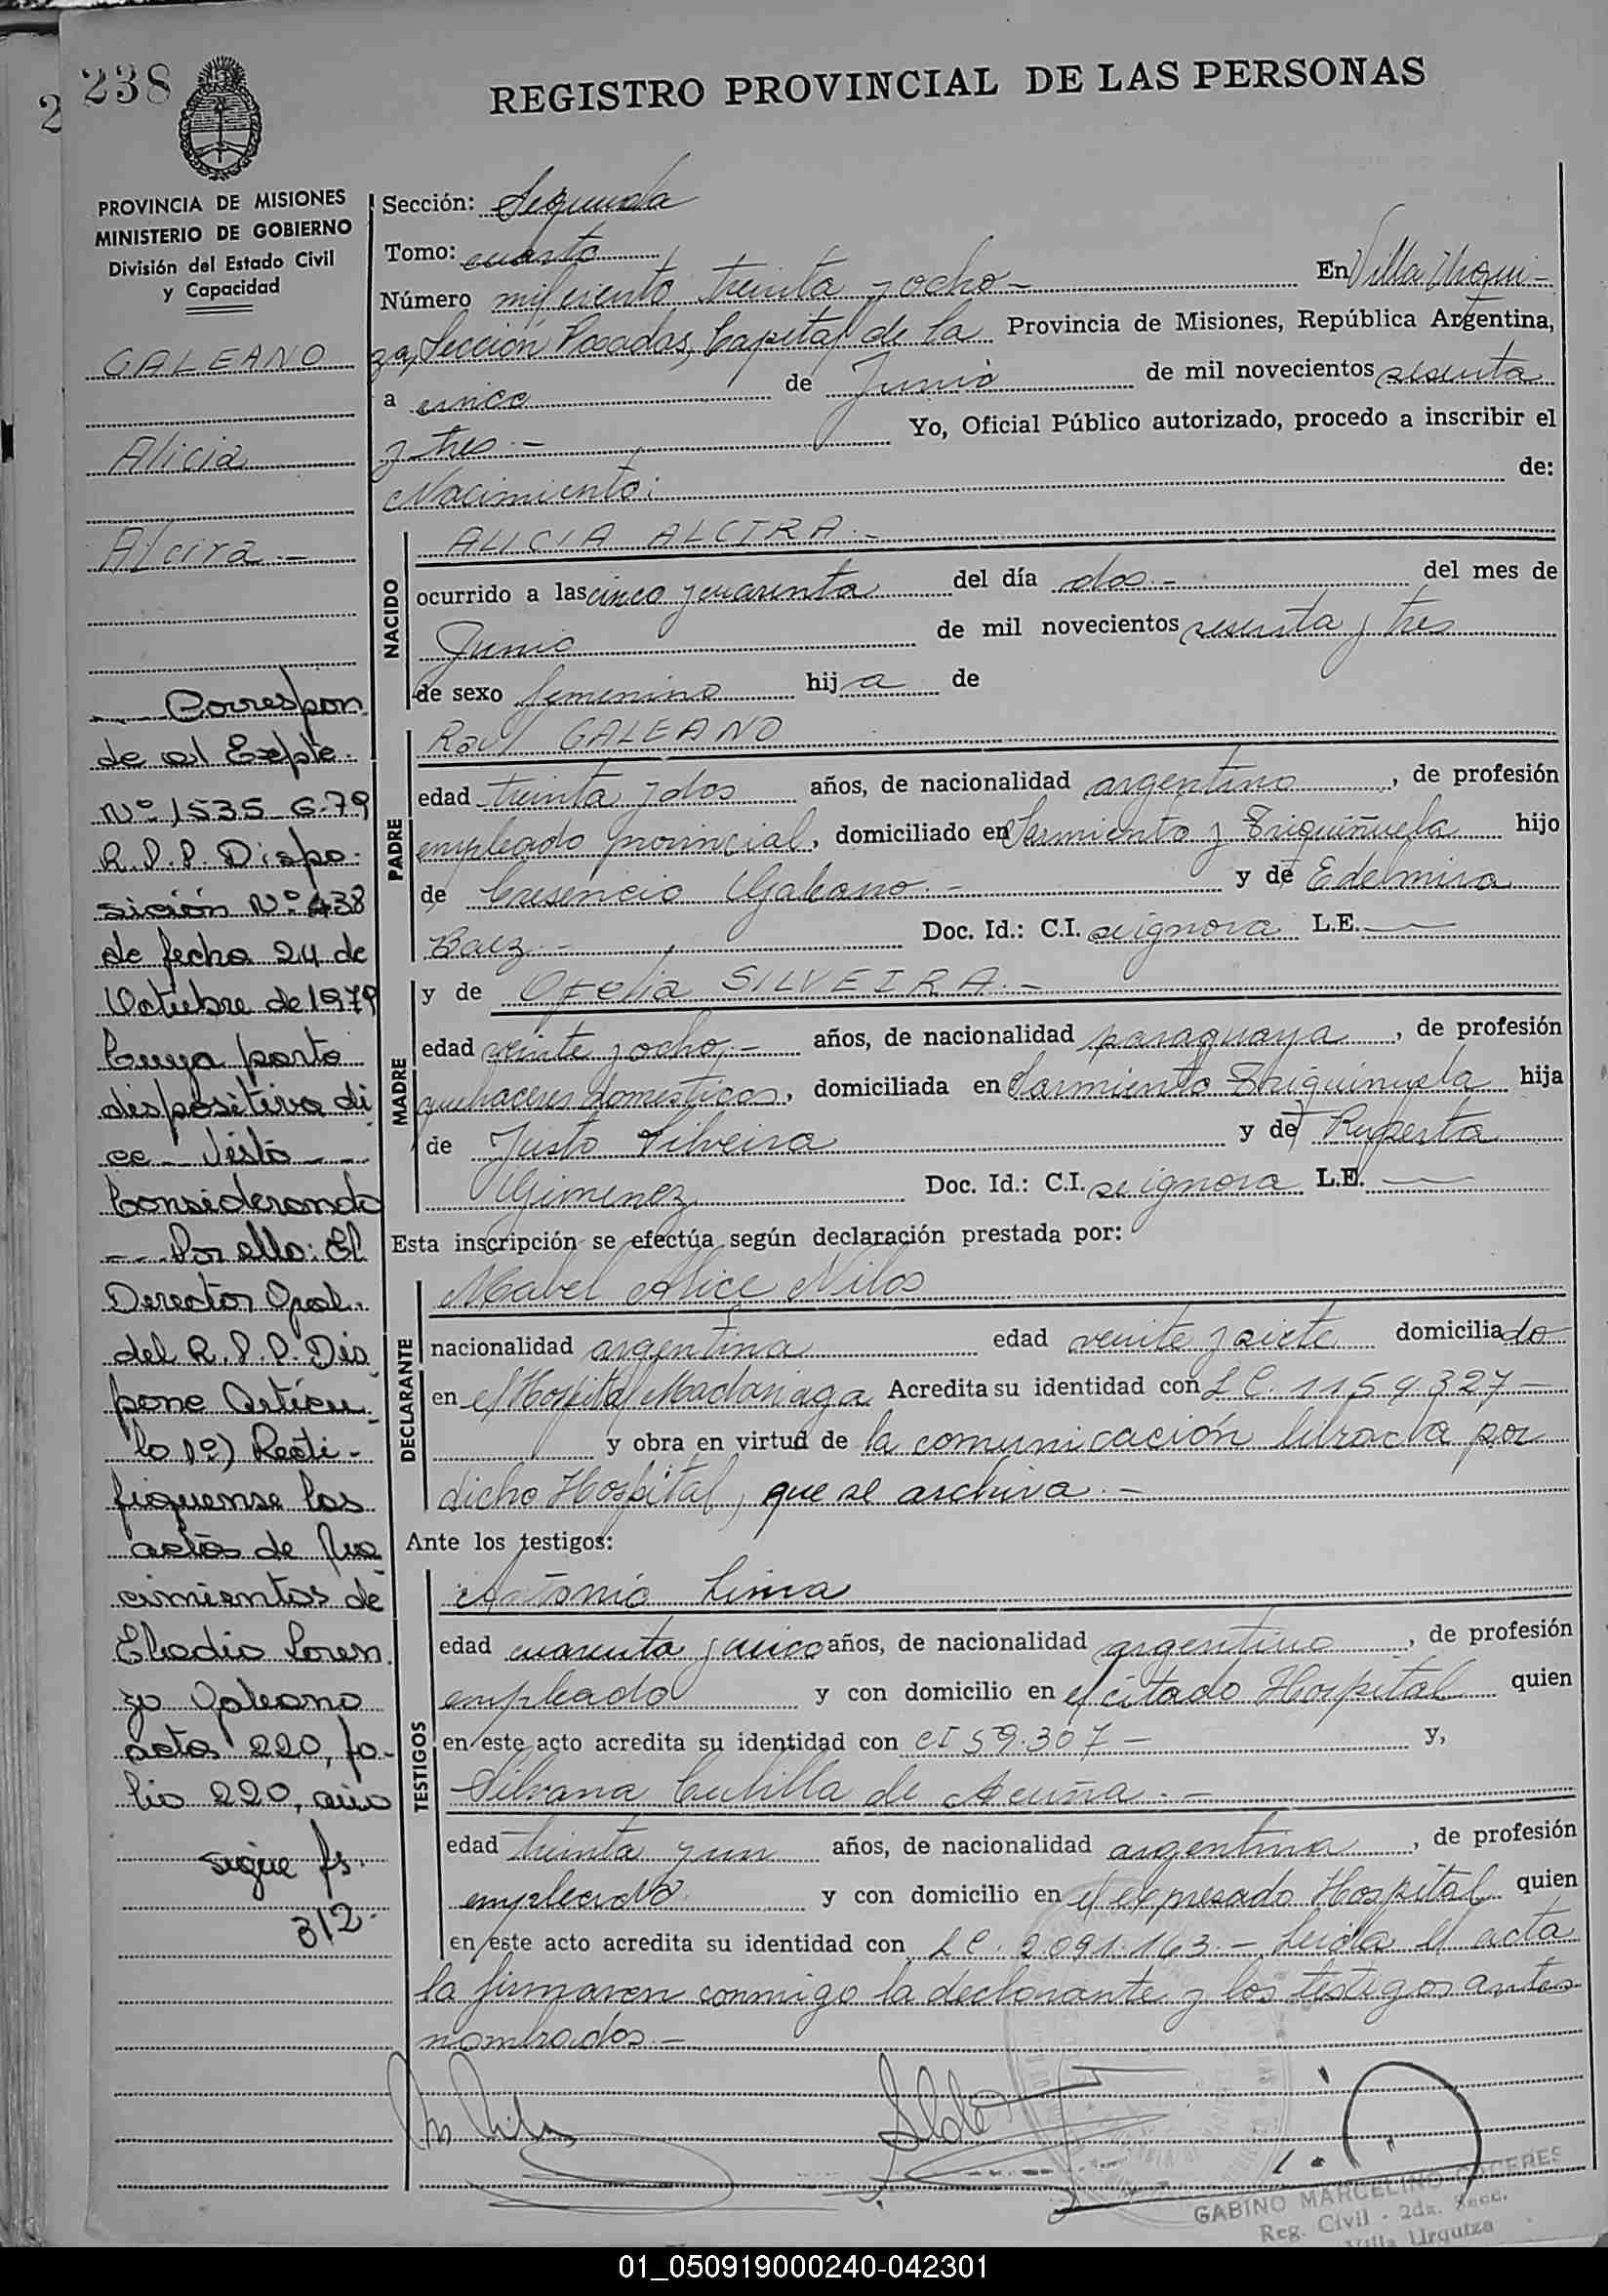 238
REGISTRO PROVINCIAL DE LAS PERSONAS
PROVINCIA DE MISIONES
MINISTERIO DE GOBIERNO
División del Estado Civil
y Capacidad
GALEANO
Alicia
Alcira.-
Correspon
de al Expte.
Nº 1535-G-79
R.P.P. Dispo-
sición Nº 438
de fecha 24 de
Octubre de 1979
Cuya parte
dispositiva di
ce - Visto - -
Considerando
--- Por ello: El
Derector Gral.
del R.P.P. Dis
pone Artícu-
lo 1º) Recti-
fiquense las
actas de Na
cimientos de
Eladio Loren
zo Galeano
acta 220, fo-
lio 220, año
sigue fs.
312-
Sección: Segunda
Tomo: cuarto
Número mil ciento treinta y ocho- En Villa Urqui-
za, Sección Posadas, Capital de la Provincia de Misiones, República Argentina,
a cinco de Junio de mil novecientos sesenta
y tres.- Yo, Oficial Público autorizado, procedo a inscribir el
Nacimiento: de:
NACIDO
ALICIA ALCIRA.-
ocurrido a las cinco y cuarenta del día dos.- del mes de
Junio de mil novecientos sesenta y tres
de sexo femenino hija de
PADRE
Raul GALEANO
edad treinta y dos años, de nacionalidad argentino, de profesión
empleado provincial, domiciliado en Sarmiento y Triquiñuela hijo
de Cresencio Galeano.- y de Edelmira
Baez.- Doc. Id.: C.I. se ignora L.E. —
MADRE
y de Ofelia SILVEIRA.-
edad veinte y ocho,- años, de nacionalidad paraguaya, de profesión
quehaceres domesticos, domiciliada en Sarmiento Triquinuela hija
de Justo Silveira y de Ruperta
Gimenez Doc. Id.: C.I. se ignora L.E. —
Esta inscripción se efectúa según declaración prestada por:
DECLARANTE
Mabel Alice Nilos
nacionalidad argentina edad veinte y siete domiciliado
en el Hospital Madariaga Acredita su identidad con L C. 1159327-
y obra en virtud de la comunicación librada por
dicho Hospital, que se archiva.-
Ante los testigos:
TESTIGOS
Antonio Lima
edad cuarenta y cinco años, de nacionalidad argentino, de profesión
empleado y con domicilio en el citado Hospital quien
en este acto acredita su identidad con CI 59.307- y,
Silvana Cubilla de Acuña.-
edad treinta y un años, de nacionalidad argentina, de profesión
empleada y con domicilio en el expresado Hospital quien
en este acto acredita su identidad con L C. 2.091.163.- Leida el acta
la firmaron conmigo la declarante y los testigos antes
nombrados.-
GABINO MARCELINO CACERES
Reg. Civil - 2da. Secc.
Villa Urquiza
01_050919000240-042301